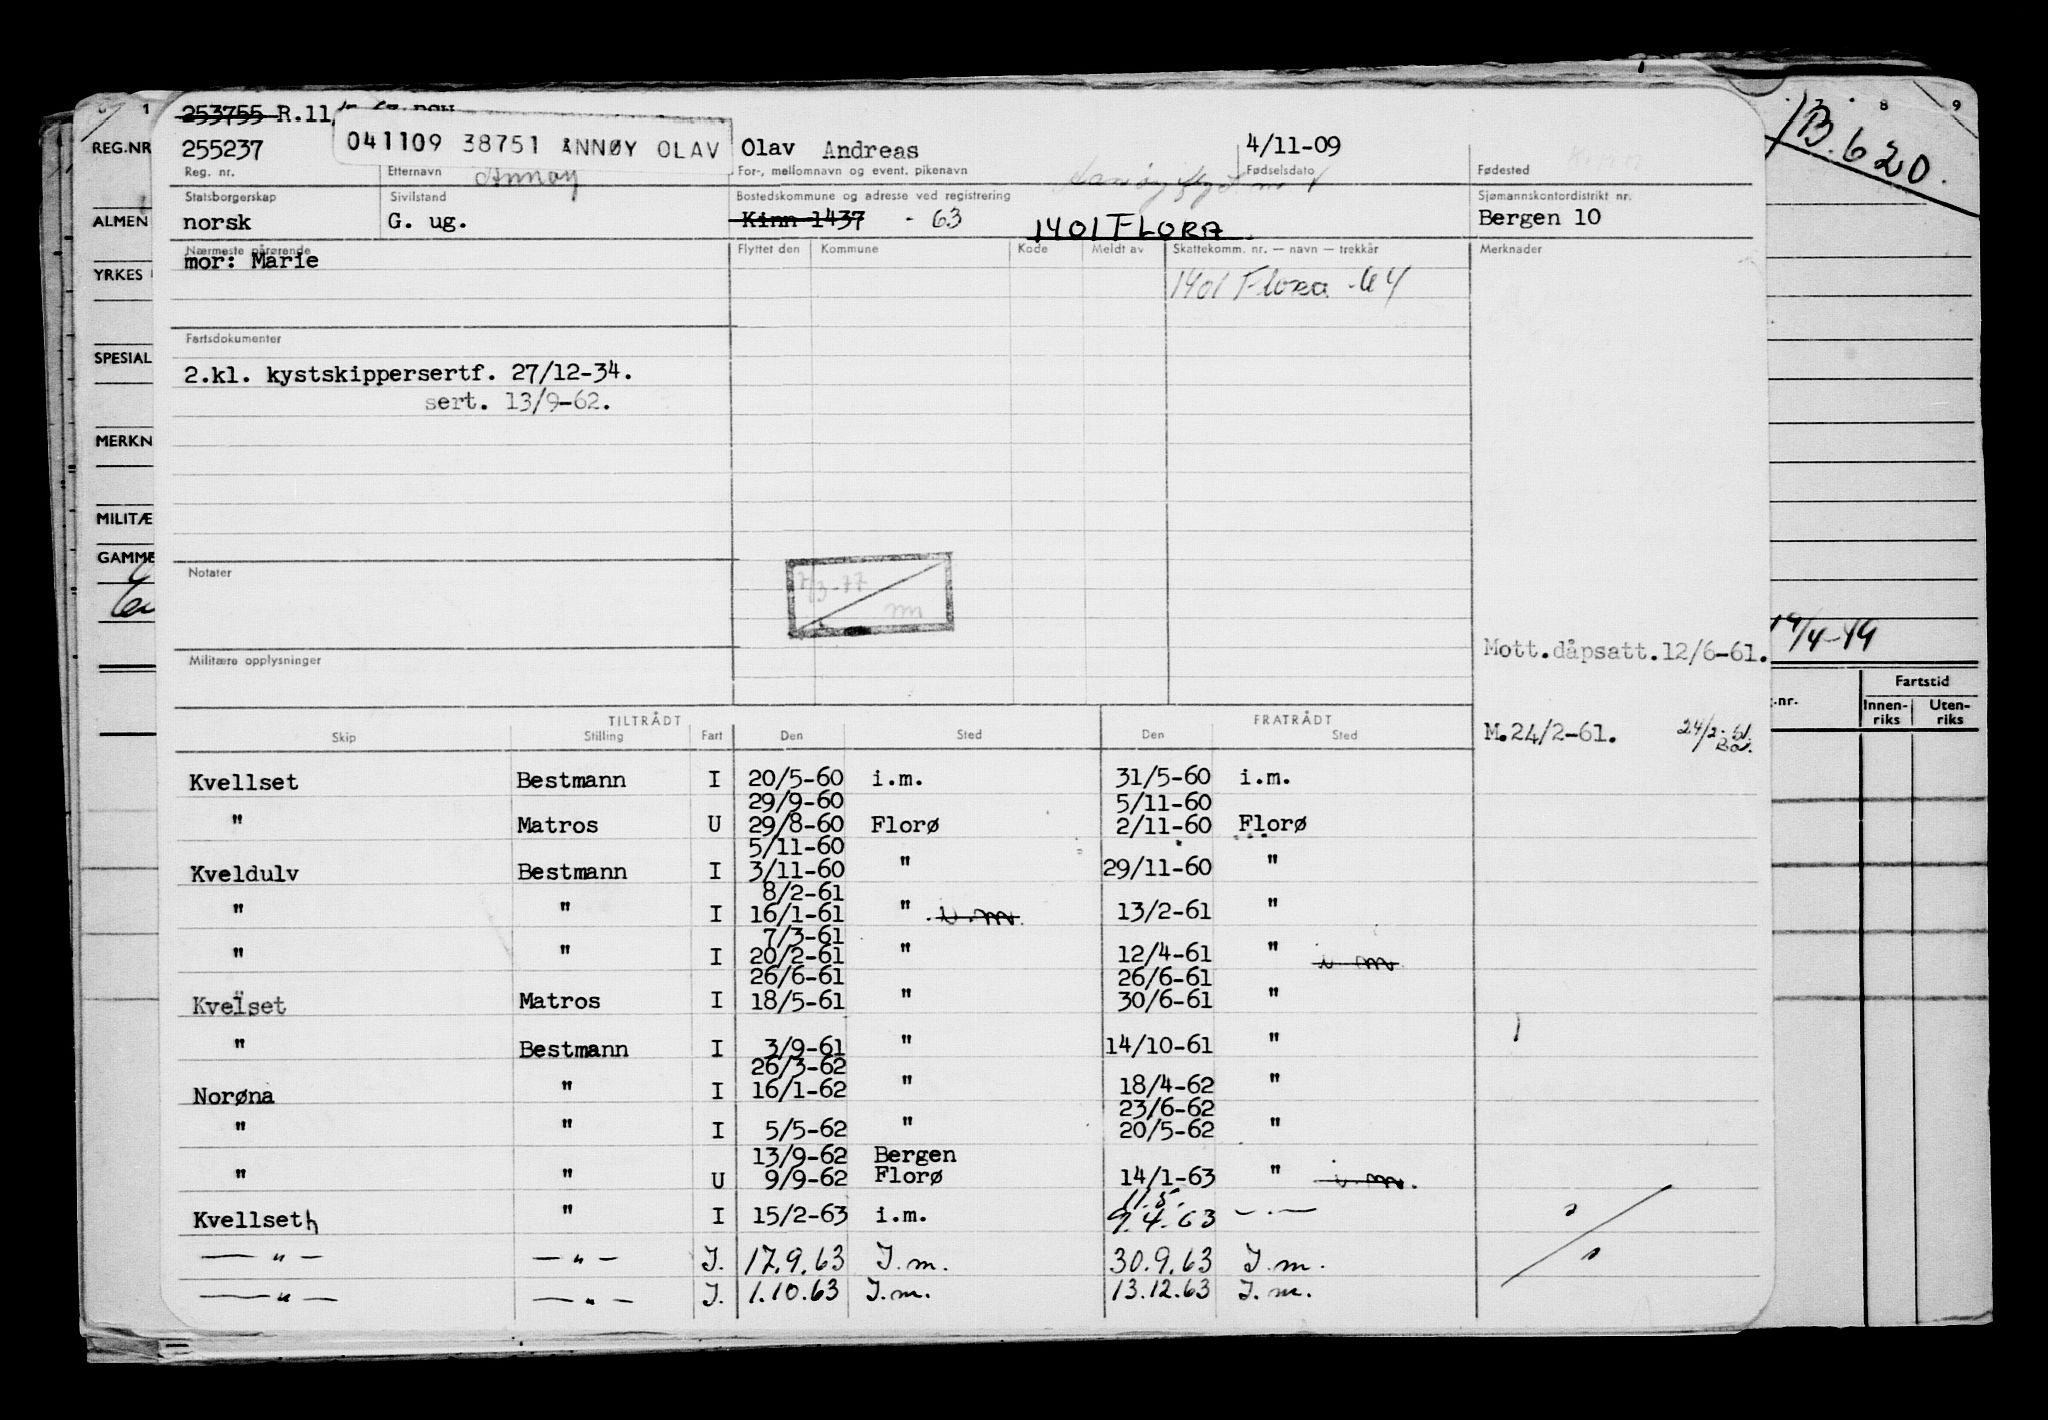 253755 R.11
041109 38751 ANNØY OLAV
255237 Olav Andreas 4/11-09
Reg. nr. Etternavn Annøy For-, mellomnavn og event. pikenavn Fødselsdato Fødested
Statsborgerskap Sivilstand Bostedskommune og adresse ved registrering Sjømannskontordistrikt nr.
norsk G. ug. Kinn 1437 - 63 1401 FLORA. Bergen 10
Nærmeste pårørende Flyttet den Kommune Kode Meldt av Skattekomm. nr. — navn — trekkår Merknader
mor: Marie
1401 Flora -64
Fartsdokumenter
2.kl. kystskippersertf. 27/12-34.
sert. 13/9-62.
Notater
7/3-77
Militære opplysninger
Mott.dåpsatt.12/6-61.
TILTRÅDT FRATRÅDT
Skip Stilling Fart Den Sted Den Sted
M.24/2-61. 24/2-61.
Kvellset Bestmann I 20/5-60 i.m. 31/5-60 i.m.
29/9-60 5/11-60
" Matros U 29/8-60 Florø 2/11-60 Florø
5/11-60
Kveldulv Bestmann I 3/11-60 " 29/11-60 "
8/2-61
" " I 16/1-61 " i.m. 13/2-61 "
7/3-61
" " I 20/2-61 " 12/4-61 " i.m.
26/6-61 26/6-61
Kvelset Matros I 18/5-61 " 30/6-61 "
" Bestmann I 3/9-61 " 14/10-61 "
26/3-62
Norøna " I 16/1-62 " 18/4-62 "
23/6-62
" " I 5/5-62 " 20/5-62 "
13/9-62 Bergen
" " U 9/9-62 Florø 14/1-63 " i.m.
11.5.
Kvellseth " I 15/2-63 i.m. 9.4.63 — . —
— " — — " — I. 17.9.63 I.m. 30.9.63 I.m.
— " — — " — I. 1.10.63 I.m. 13.12.63 I.m.
1
REG.NR
ALMEN
YRKES
SPESIAL
MERKN
MILITÆ
GAMME
8 9
B.620.
19/4-49
Fartstid
.-nr. Innen-riks Uten-riks